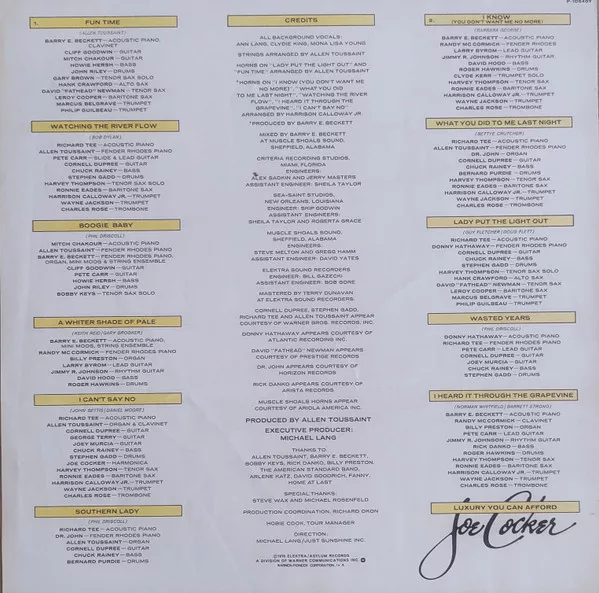 P-10549Y
1. FUN TIME
(ALLEN TOUSSAINT)
BARRY E. BECKETT—ACOUSTIC PIANO,
CLAVINET
CLIFF GOODWIN—GUITAR
MITCH CHAKOUR—GUITAR
HOWIE HERSH—BASS
JOHN RILEY—DRUMS
GARY BROWN—TENOR SAX SOLO
HANK CRAWFORD—ALTO SAX
DAVID "FATHEAD" NEWMAN—TENOR SAX
LEROY COOPER—BARITONE SAX
MARCUS BELGRAVE—TRUMPET
PHILIP GUILBEAU—TRUMPET
WATCHING THE RIVER FLOW
(BOB DYLAN)
RICHARD TEE—ACOUSTIC PIANO
ALLEN TOUSSAINT—FENDER RHODES PIANO
PETE CARR—SLIDE & LEAD GUITAR
CORNELL DUPREE—GUITAR
CHUCK RAINEY—BASS
STEPHEN GADD—DRUMS
HARVEY THOMPSON—TENOR SAX SOLO
RONNIE EADES—BARITONE SAX
HARRISON CALLOWAY JR.—TRUMPET
WAYNE JACKSON—TRUMPET
CHARLES ROSE—TROMBONE
BOOGIE BABY
(PHIL DRISCOLL)
MITCH CHAKOUR—ACOUSTIC PIANO
ALLEN TOUSSAINT—FENDER RHODES PIANO
BARRY E. BECKETT—FENDER RHODES PIANO,
ORGAN, MINI MOOG & STRING ENSEMBLE
CLIFF GOODWIN—GUITAR
PETE CARR—GUITAR
HOWIE HERSH—BASS
JOHN RILEY—DRUMS
BOBBY KEYS—TENOR SAX SOLO
A WHITER SHADE OF PALE
(KEITH REID/GARY BROOKER)
BARRY E. BECKETT—ACOUSTIC PIANO,
MINI MOOG, STRING ENSEMBLE
RANDY McCORMICK—FENDER RHODES PIANO
BILLY PRESTON—ORGAN
LARRY BYROM—LEAD GUITAR
JIMMY R. JOHNSON—RHYTHM GUITAR
DAVID HOOD—BASS
ROGER HAWKINS—DRUMS
I CAN'T SAY NO
(JOHN BETTIS/DANIEL MOORE)
RICHARD TEE—ACOUSTIC PIANO
ALLEN TOUSSAINT—ORGAN & CLAVINET
CORNELL DUPREE—GUITAR
GEORGE TERRY—GUITAR
JOEY MURCIA—GUITAR
CHUCK RAINEY—BASS
STEPHEN GADD—DRUMS
JOE COCKER—HARMONICA
HARVEY THOMPSON—TENOR SAX
RONNIE EADES—BARITONE SAX
HARRISON CALLOWAY JR.—TRUMPET
WAYNE JACKSON—TRUMPET
CHARLES ROSE—TROMBONE
SOUTHERN LADY
(PHIL DRISCOLL)
RICHARD TEE—ACOUSTIC PIANO
DR. JOHN—FENDER RHODES PIANO
ALLEN TOUSSAINT—ORGAN
CORNELL DUPREE—GUITAR
CHUCK RAINEY—BASS
BERNARD PURDIE—DRUMS
CREDITS
ALL BACKGROUND VOCALS:
ANN LANG, CLYDIE KING, MONA LISA YOUNG
STRINGS ARRANGED BY ALLEN TOUSSAINT
HORNS ON "LADY PUT THE LIGHT OUT" AND
"FUN TIME" ARRANGED BY ALLEN TOUSSAINT
"HORNS ON "I KNOW (YOU DON'T WANT ME
NO MORE)", "WHAT YOU DID
TO ME LAST NIGHT", "WATCHING THE RIVER
FLOW", "I HEARD IT THROUGH THE
GRAPEVINE", "I CAN'T SAY NO"
ARRANGED BY HARRISON CALLOWAY JR.
"PRODUCED BY BARRY E. BECKETT
MIXED BY BARRY E. BECKETT
AT MUSCLE SHOALS SOUND,
SHEFFIELD, ALABAMA
CRITERIA RECORDING STUDIOS,
MIAMI, FLORIDA
ENGINEERS:
ALEX SADKIN AND JERRY MASTERS
ASSISTANT ENGINEER: SHEILA TAYLOR
SEA-SAINT STUDIOS,
NEW ORLEANS, LOUISIANA
ENGINEER: SKIP GODWIN
ASSISTANT ENGINEERS:
SHEILA TAYLOR AND ROBERTA GRACE
MUSCLE SHOALS SOUND,
SHEFFIELD, ALABAMA
ENGINEERS:
STEVE MELTON AND GREGG HAMM
ASSISTANT ENGINEER: DAVID YATES
ELEKTRA SOUND RECORDERS
ENGINEER: BILL GAZECKI
ASSISTANT ENGINEER: BOB GORE
MASTERED BY TERRY DUNAVAN
AT ELEKTRA SOUND RECORDERS
CORNELL DUPREE, STEPHEN GADD,
RICHARD TEE AND ALLEN TOUSSAINT APPEAR
COURTESY OF WARNER BROS. RECORDS, INC.
DONNY HATHAWAY APPEARS COURTESY OF
ATLANTIC RECORDING INC.
DAVID "FATHEAD" NEWMAN APPEARS
COURTESY OF PRESTIGE RECORDS
DR. JOHN APPEARS COURTESY OF
HORIZON RECORDS
RICK DANKO APPEARS COURTESY OF
ARISTA RECORDS
MUSCLE SHOALS HORNS APPEAR
COURTESY OF ARIOLA AMERICA INC.
PRODUCED BY ALLEN TOUSSAINT
EXECUTIVE PRODUCER:
MICHAEL LANG
THANKS TO:
ALLEN TOUSSAINT, BARRY E. BECKETT,
BOBBY KEYS, RICK DANKO, BILLY PRESTON,
THE AMERICAN STANDARD BAND,
ARLENE KATZ, DAVID GOODRICH, FANNY,
HOME AT LAST
SPECIAL THANKS:
STEVE WAX AND MICHAEL ROSENFELD
PRODUCTION COORDINATION, RICHARD DION
HOBIE COOK, TOUR MANAGER
DIRECTION:
MICHAEL LANG/JUST SUNSHINE INC.
©1978 ELEKTRA/ASYLUM RECORDS
A DIVISION OF WARNER COMMUNICATIONS INC.
WARNER-PIONEER CORPORATION
2. I KNOW
(YOU DON'T WANT ME NO MORE)
(BARBARA GEORGE)
BARRY E. BECKETT—ACOUSTIC PIANO
RANDY Mc CORMICK—FENDER RHODES
LARRY BYROM—LEAD GUITAR
JIMMY R. JOHNSON—RHYTHM GUITAR
DAVID HOOD—BASS
ROGER HAWKINS—DRUMS
CLYDE KERR—TRUMPET SOLO
HARVEY THOMPSON—TENOR SAX
RONNIE EADES—BARITONE SAX
HARRISON CALLOWAY JR.—TRUMPET
WAYNE JACKSON—TRUMPET
CHARLES ROSE—TROMBONE
WHAT YOU DID TO ME LAST NIGHT
(BETTYE CRUTCHER)
RICHARD TEE—ACOUSTIC PIANO
DR. JOHN—ORGAN
CORNELL DUPREE—GUITAR
CHUCK RAINEY—BASS
BERNARD PURDIE—DRUMS
HARVEY THOMPSON—TENOR SAX
RONNIE EADES—BARITONE SAX
HARRISON CALLOWAY JR.—TRUMPET
WAYNE JACKSON—TRUMPET
CHARLES ROSE—TROMBONE
LADY PUT THE LIGHT OUT
(GUY FLETCHER/DOUG FLETT)
RICHARD TEE—ACOUSTIC PIANO
DONNY HATHAWAY—FENDER RHODES PIANO
CORNELL DUPREE—GUITAR
CHUCK RAINEY—BASS
STEPHEN GADD—DRUMS
HARVEY THOMPSON—TENOR SAX
HANK CRAWFORD—ALTO SAX
DAVID "FATHEAD" NEWMAN—TENOR SAX
LEROY COOPER—BARITONE SAX
MARCUS BELGRAVE—TRUMPET
PHILIP GUILBEAU—TRUMPET
WASTED YEARS
(PHIL DRISCOLL)
DONNY HATHAWAY—ACOUSTIC PIANO
RICHARD TEE—FENDER RHODES PIANO
PETE CARR—LEAD GUITAR
CORNELL DUPREE—GUITAR
JOEY MURCIA—GUITAR
CHUCK RAINEY—BASS
STEPHEN GADD—DRUMS
I HEARD IT THROUGH THE GRAPEVINE
(NORMAN WHITFIELD/BARRETT STRONG)
BARRY E. BECKETT—ACOUSTIC PIANO
RANDY McCORMICK—CLAVINET
BILLY PRESTON—ORGAN
PETE CARR—LEAD GUITAR
JIMMY R. JOHNSON—RHYTHM GUITAR
RICK DANKO—BASS
ROGER HAWKINS—DRUMS
HARVEY THOMPSON—TENOR SAX
RONNIE EADES—BARITONE SAX
HARRISON CALLOWAY JR.—TRUMPET
WAYNE JACKSON—TRUMPET
CHARLES ROSE—TROMBONE
LUXURY YOU CAN AFFORD
Joe Cocker